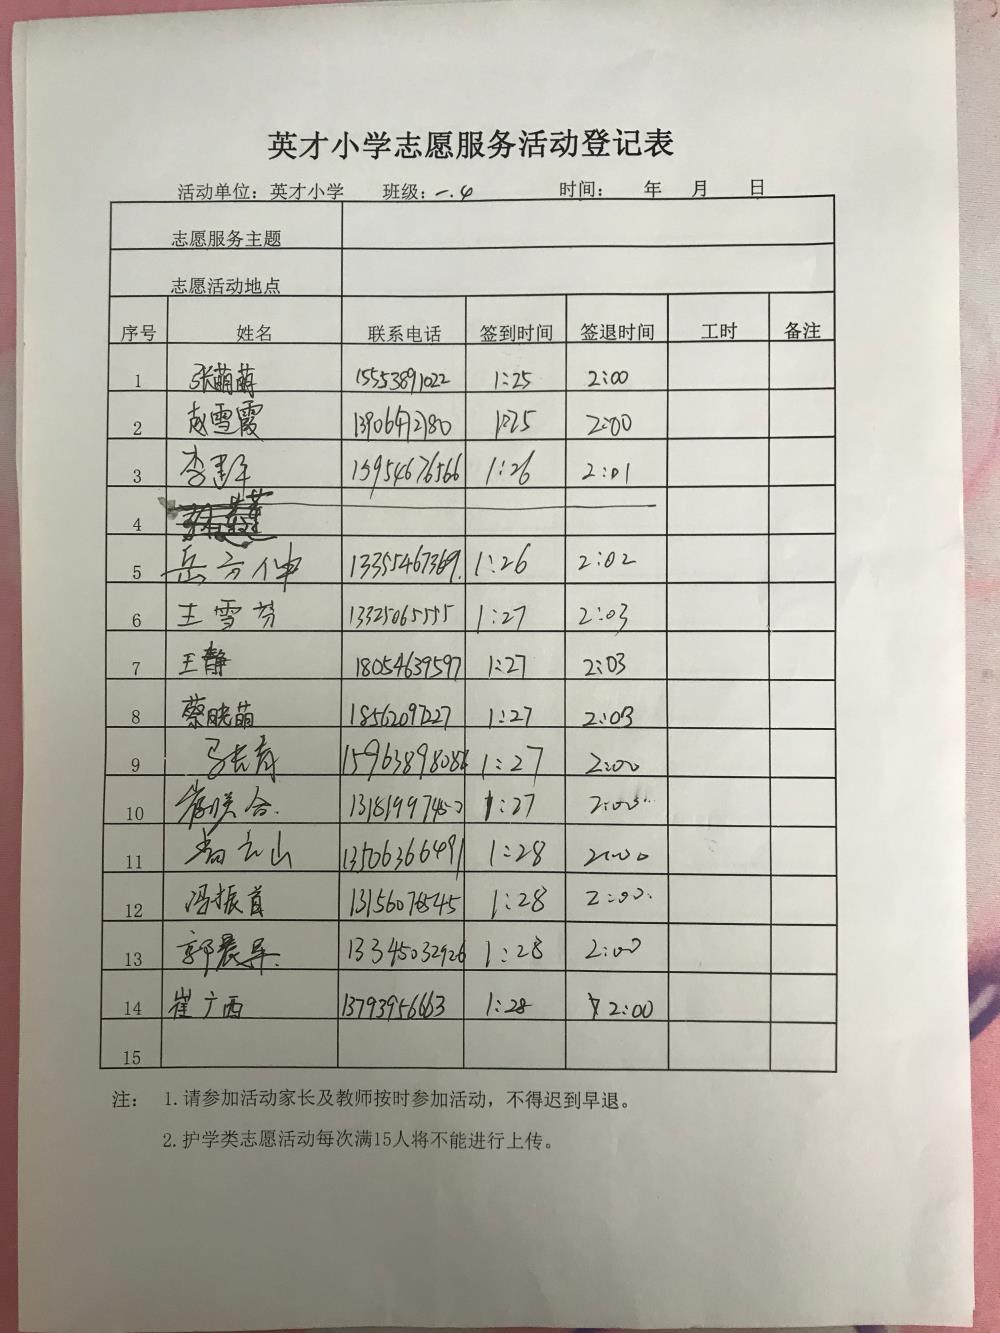 英才小学志愿服务活动登记表
活动单位：英才小学 班级：一.4 时间： 年 月 日
志愿服务主题
志愿活动地点
序号 姓名 联系电话 签到时间 签退时间 工时 备注
1 张萌萌 15553891022 1:25 2:00
2 赵雪霞 13906472780 1:25 2:00
3 李 13954676566 1:26 2:01
4
5 岳 13355467369. 1:26 2:02
6 王雪芬 13325065555 1:27 2:03
7 王静 18054639597 1:27 2:03
8 蔡晓萌 18562097227 1:27 2:03
9 马长青 15963898086 1:27 2:00
10 崔联合. 1:27 2:00
11 山 13506366491 1:28 2:00
12 冯振 1:28 2:00.
13 郭晨 13345032926 1:28 2:00
14 崔广西 13793956663 1:28 2:00
15
注： 1.请参加活动家长及教师按时参加活动，不得迟到早退。
2.护学类志愿活动每次满15人将不能进行上传。